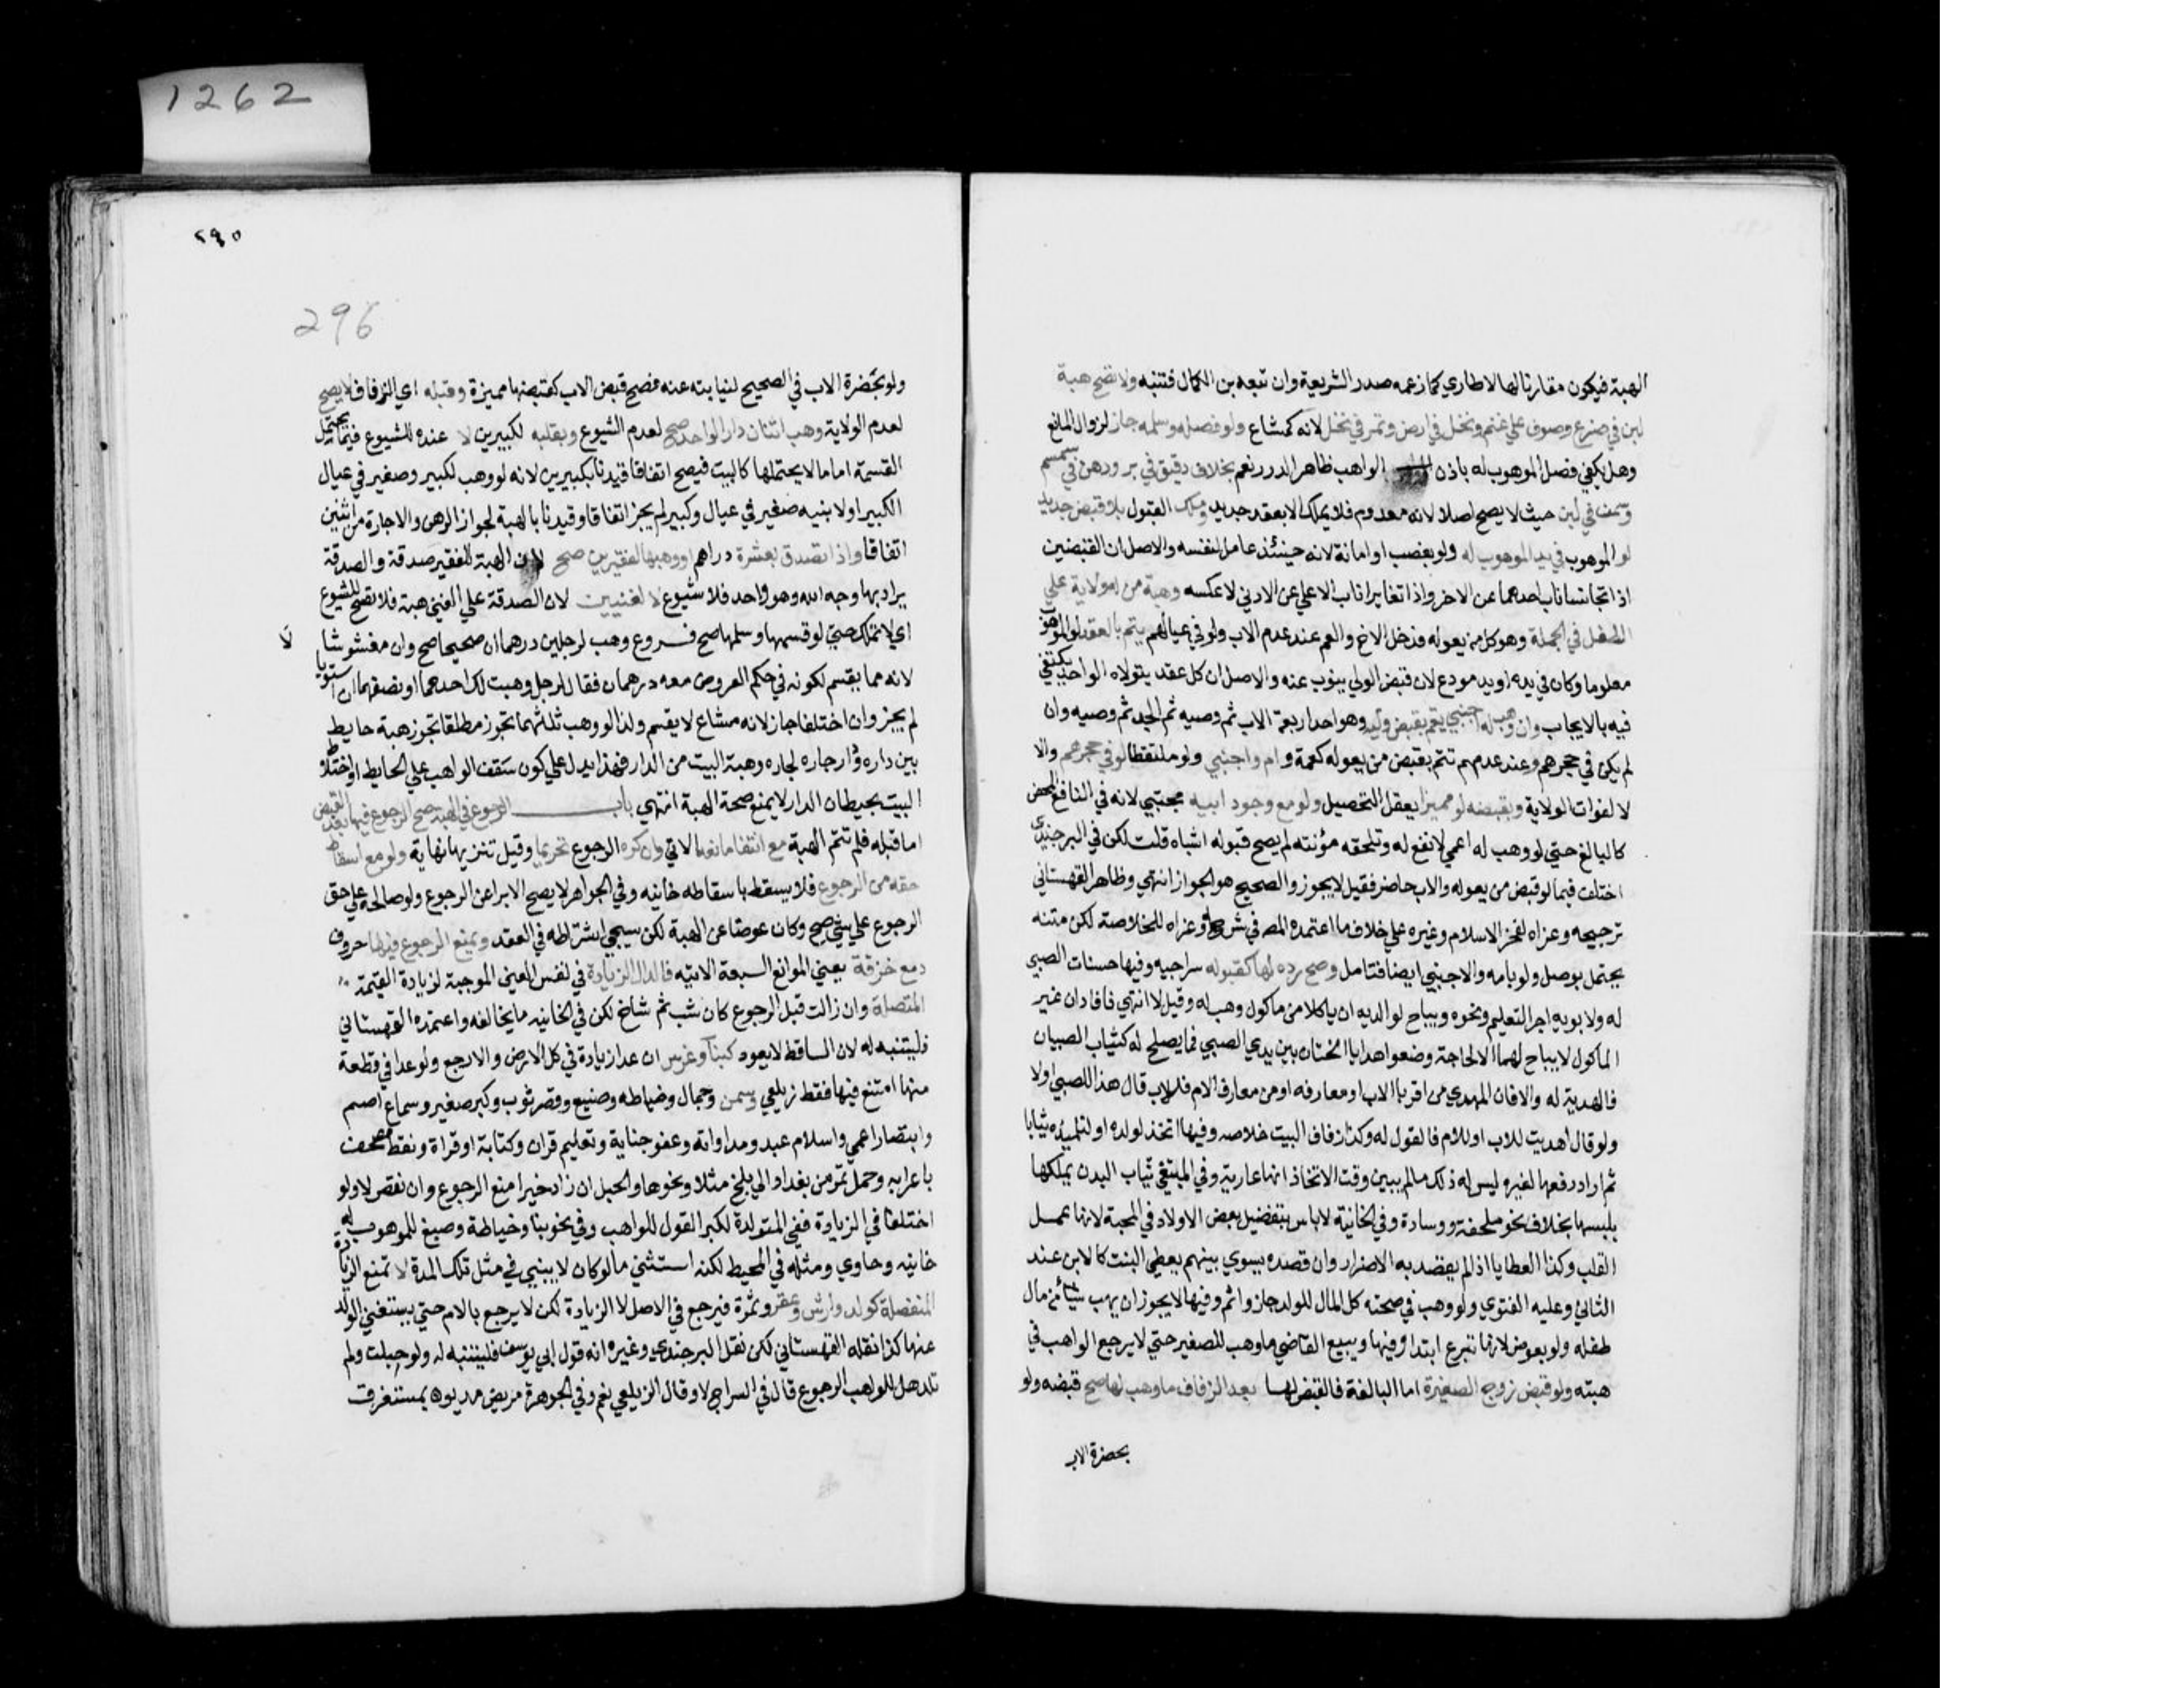 الهبة فيكون مقارنا لها لا طاري كما زعمه صدر الشريعة وان تبعه بن الكمال فتنبه ولا تصح هبة
لبن في ضرع وصوف علي غنم ونخل في ارض وتمر في نخل لانه كمشاع ولو فصله وسلمه جاز لزوال المانع
وهل يكفي فصل الموهوب له باذن الواهب ظاهر الدرر نعم بخلاف دقيق في بر ودهن في سمسم
وسمن في لبن حيث لا يصح اصلا لانه معدوم فلا يملك الا بعقد جديد وملك القبول بلا قبض جديد
لو الموهوب في يد الموهوب له ولو بغصب او امانة لانه حينئذ عامل لنفسه والاصل ان القبضين
اذا تجانسا ناب احدهما عن الاخر واذا تغايرا ناب الاعلي عن الادني لا عكسه وهبة من له ولاية علي
الطفل في الجملة وهو كل من يعوله فدخل الاخ والعم عند عدم الاب ولو في عيالهم يتم بالعقد لو الموهوب
معلوما وكان في يده او يد مودعه لان قبض الولي ينوب عنه والاصل ان كل عقد يتولاه الواحد يكتفي
فيه بالايجاب وان وهب له اجنبي يتم بقبض وليه وهو احد اربعة الاب ثم وصيه ثم الجد ثم وصيه وان
لم يكن في حجرهم وعند عدمهم تتم بقبض من يعوله كعمه وام واجنبي ولو ملتقطا لو في حجرهم والا
لا لفوات الولاية وبقبضه لو مميزا يعقل التحصيل ولو مع وجود ابيه مجتبي لانه في النافع المحض
كالبالغ حتي لو وهب له اعمي لا نفع له وتلحقه مؤنته لم يصح قبوله اشباه قلت لكن في البرجندي
اختلف فيما لو قبض من يعوله والاب حاضر فقيل لا يجوز والصحيح هو الجواز انتهي وظاهر القهستاني
ترجيحه وعزاه لفخر الاسلام وغيره علي خلاف ما اعتمده المص في شرحه وعزاه للخلاصة لكن متنه
يحتمل بوصل ولو بامه والاجنبي ايضا فتامل وصح رده لها كقبوله سراجيه وفيها حسنات الصبي
له ولابويه اجر التعليم ونحوه ويباح لوالديه ان ياكلا من ماكول وهب له وقيل لا انتهي فافاد ان غير
الماكول لا يباح لهما الا لحاجة وضعوا هدايا الختان بين يدي الصبي فما يصلح له كثياب الصبيان
فالهدية له والا فان المهدي من اقربا الاب او معارفه او من معارف الام فللاب قال هذا للصبي اولا
ولو قال اهديت للاب او للام فالقول له وكذا زفاف البيت خلاصه وفيها اتخذ لولده او لتلميذه ثيابا
ثم اراد دفعها لغيره ليس له ذلك ما لم يبين وقت الاتخاذ انها عارية وفي المبتغي ثياب البدن يملكها
بلبسها بخلاف نحو ملحفة ووسادة وفي الخانية لا باس بتفضيل بعض الاولاد في المحبة لانها عمل
القلب وكذا العطايا اذا لم يقصد به الاضرار وان قصده يسوي بينهم يعطي البنت كالابن عند
الثاني وعليه الفتوي ولو وهب في صحته كل المال للولد جاز واثم وفيها لا يجوز ان يهب شيئا من مال
طفله ولو بعوض لانها تبرع ابتدا وفيها ويبيع القاضي ما وهب للصغير حتي لا يرجع الواهب في
هبته ولو قبض زوج الصغيرة اما البالغة فالقبض لها بعد الزفاف ما وهب لها صح قبضه ولو
بحضرة الاب
1262
٢٩٥
296
ولو بحضرة الاب في الصحيح لنيابته عنه فصح قبض الاب كقبضها مميزة وقبله اي الزفاف لا يصح
لعدم الولاية وهب اثنان دارا لواحد صح لعدم الشيوع وبقلبه لكبيرين لا عنده للشيوع فيما يحتمل
القسمة اما ما لا يحتملها كالبيت فيصح اتفاقا قيدنا بكبيرين لانه لو وهب لكبير وصغير في عيال
الكبير او لابنيه صغير في عيال وكبير لم يجز اتفاقا وقيدنا بالهبة لجواز الرهن والاجارة من اثنين
اتفاقا واذا تصدق بعشرة دراهم او وهبها لفقيرين صح لان الهبة للفقير صدقة والصدقة
يراد بها وجه الله وهو واحد فلا شيوع لا لغنيين لان الصدقة علي الغني هبة فلا تصح للشيوع
اي لا تملك حتي لو قسمها وسلمها صح فروع وهب لرجلين درهما ان صحيحا صح وان مغشوشا لا
لانه مما يقسم لكونه في حكم العروض معه درهمان فقال لرجل وهبت لك احدهما او نصفهما ان استويا
لم يجز وان اختلفا جاز لانه مشاع لا يقسم ولذا لو وهب ثلثهما تجوز مطلقا تجوز هبة حايط
بين داره ودار جاره لجاره وهبة البيت من الدار فهذا يدل علي كون سقف الواهب علي الحايط واختلاط
البيت بحيطان الدار لا يمنع صحة الهبة انتهي باب الرجوع في الهبة صح الرجوع فيها بعد القبض
اما قبله فلم تتم الهبة مع انتفا مانعه الاتي وان كره الرجوع تحريما وقيل تنزيها نهاية ولو مع اسقاط
حقه من الرجوع فلا يسقط باسقاطه خانيه وفي الجواهر لا يصح الابرا عن الرجوع ولو صالحه علي حق
الرجوع علي شي صح وكان عوضا عن الهبة لكن سيجي اشتراطه في العقد ويمنع الرجوع فيها حروف
دمع خزقة يعني الموانع السبعة الاتيه فالدال الزيادة في نفس العين الموجبة لزيادة القيمة
المتصلة وان زالت قبل الرجوع كان شب ثم شاخ لكن في الخانيه ما يخالفه واعتمده القهستاني
فليتنبه له لان الساقط لا يعود كبناء وغرس ان عدا زيادة في كل الارض والا رجع ولو عدا في قطعة
منها امتنع فيها فقط زيلعي وسمن وجمال وخياطه وصبغ وقصر ثوب وكبر صغير وسماع اصم
وابصار اعمي واسلام عبد ومداواته وعفو جناية وتعليم قران وكتابة او قراة ونقط مصحف
باعرابه وحمل تمر من بغداد الي بلخ مثلا ونحوها والحبل ان زاد خيرا منع الرجوع وان نقص لا ولو
اختلفا في الزيادة ففي المتولدة لكبر القول للواهب وفي نحو بنا وخياطة وصبغ للموهوب له
خانيه وحاوي ومثله في المحيط لكنه استثني ما لو كان لا يبني في مثل تلك المدة لا تمنع الزيادة
المنفصلة كولد وارش وعقر وثمرة فيرجع في الاصل لا الزيادة لكن لا يرجع بالام حتي يستغني الولد
عنها كذا نقله القهستاني لكن نقل البرجندي وغيره انه قول ابي يوسف فليتنبه له ولو حبلت ولم
تلد هل للواهب الرجوع قال في السراج لا وقال الزيلعي نعم وفي الجوهرة مريض مديون بمستغرق